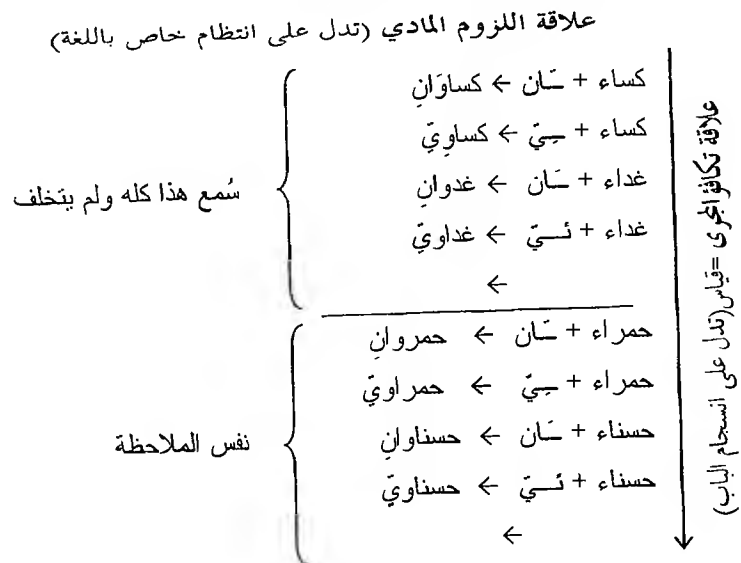 علاقة اللزوم المادي (تدل على انتظام خاص باللغة)
كساء + ـَان ← كساوَانِ
كساء + ـِيّ ← كساوِيّ
غداء + ـَان ← غدوانِ
غداء + ئـيّ ← غداويّ
←
سُمع هذا كله ولم يتخلف
حمراء + ـَان ← حمروانِ
حمراء + ـِيّ ← حمراويّ
حسناء + ـَان ← حسناوانِ
حسناء + ئـيّ ← حسناويّ
←
نفس الملاحظة
علاقة تكافؤ المجرى =قياس(تدل على انسجام الباب)